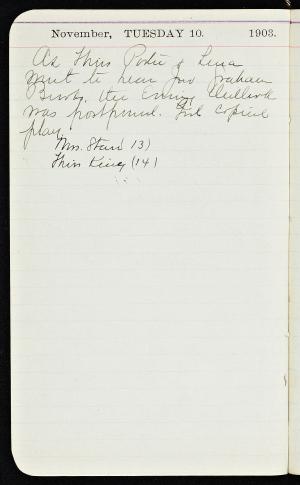 November, TUESDAY 10. 1903.
As Miss Potter & Lena
went to hear Graham
the Evening
was postponed. Girl copied
play.
Mrs. 13)
Miss King (14)